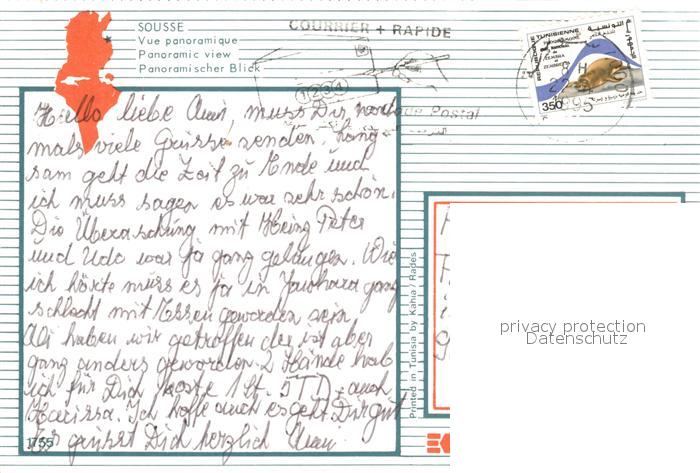 SOUSSE
Vue panoramique
Panoramic view
Panoramischer Blick
COURRIER + RAPIDE
1234
Code Postal
REPUBLIQUE TUNISIENNE
350
Hello liebe Anni, muss Dir noch
mals viele Grüsse senden. Lang
sam geht die Zeit zu Ende und
ich muss sagen es war sehr schön.
Die Überaschung mit Heinz Peter
und Udo war ja ganz gelungen. Wie
ich hörte muss es ja in Jawhara ganz
schlecht mit Essen geworden sein.
Ali haben wir getroffen der ist aber
ganz anders geworden. 2 Hände hab
ich für Dich 1 St. 5 TD, auch
Harissa. Ich hoffe auch es geht Dir gut
Es grüsst Dich herzlich
1755
Printed in Tunisia by Kahia / Rades
privacy protection
Datenschutz